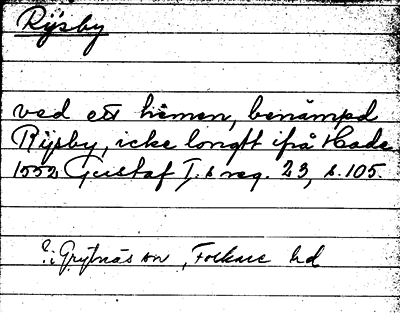 Rÿsby
ved ett hemen, benämpd
Rÿsby, icke longtt ifrå Hade
1552 Gustaf I.s reg. 23, s. 105.
?: Grytnäs sn, Folkare hd